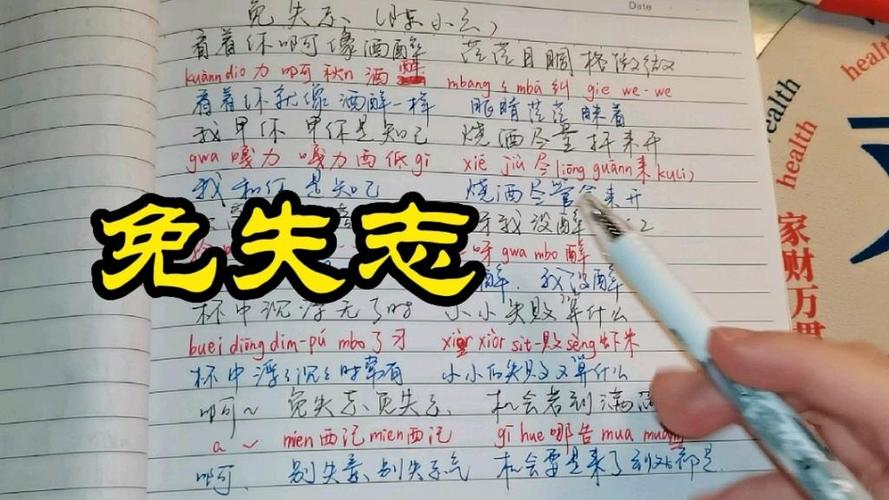 Date
免失志 (陈小云)
看着你啊像酒醉 茫茫目睭格微微
kuānn dio 力 啊 秋n 酒 醉 mbang mbā 纠 gie we-we
看着你就像酒醉一样 眼睛茫茫眯着
我甲你甲你是知己 烧酒尽量抔来开
gwa 嘎力 嘎力西低gi xiē jiù 尽liōng guānn来kui
我和你是知己 烧酒尽管拿来开
呀我没醉
呀 gwa mbo 醉
醉,我没醉
免失志
杯中沉浮无了时 小小失败算什么
buei diōng dim-pú mbo 了 习 xiòr xiòr sit-败 sèng 虾米
杯中浮浮沉沉时常有 小小的失败又算什么
啊~ 免失志、免失志、 机会若到满
a ~ mien 西记 mien 西记 gī hue 哪告 mua mua
啊. 别失志、别失志气 机会要是来了到处都是
health
health
health
家财万贯